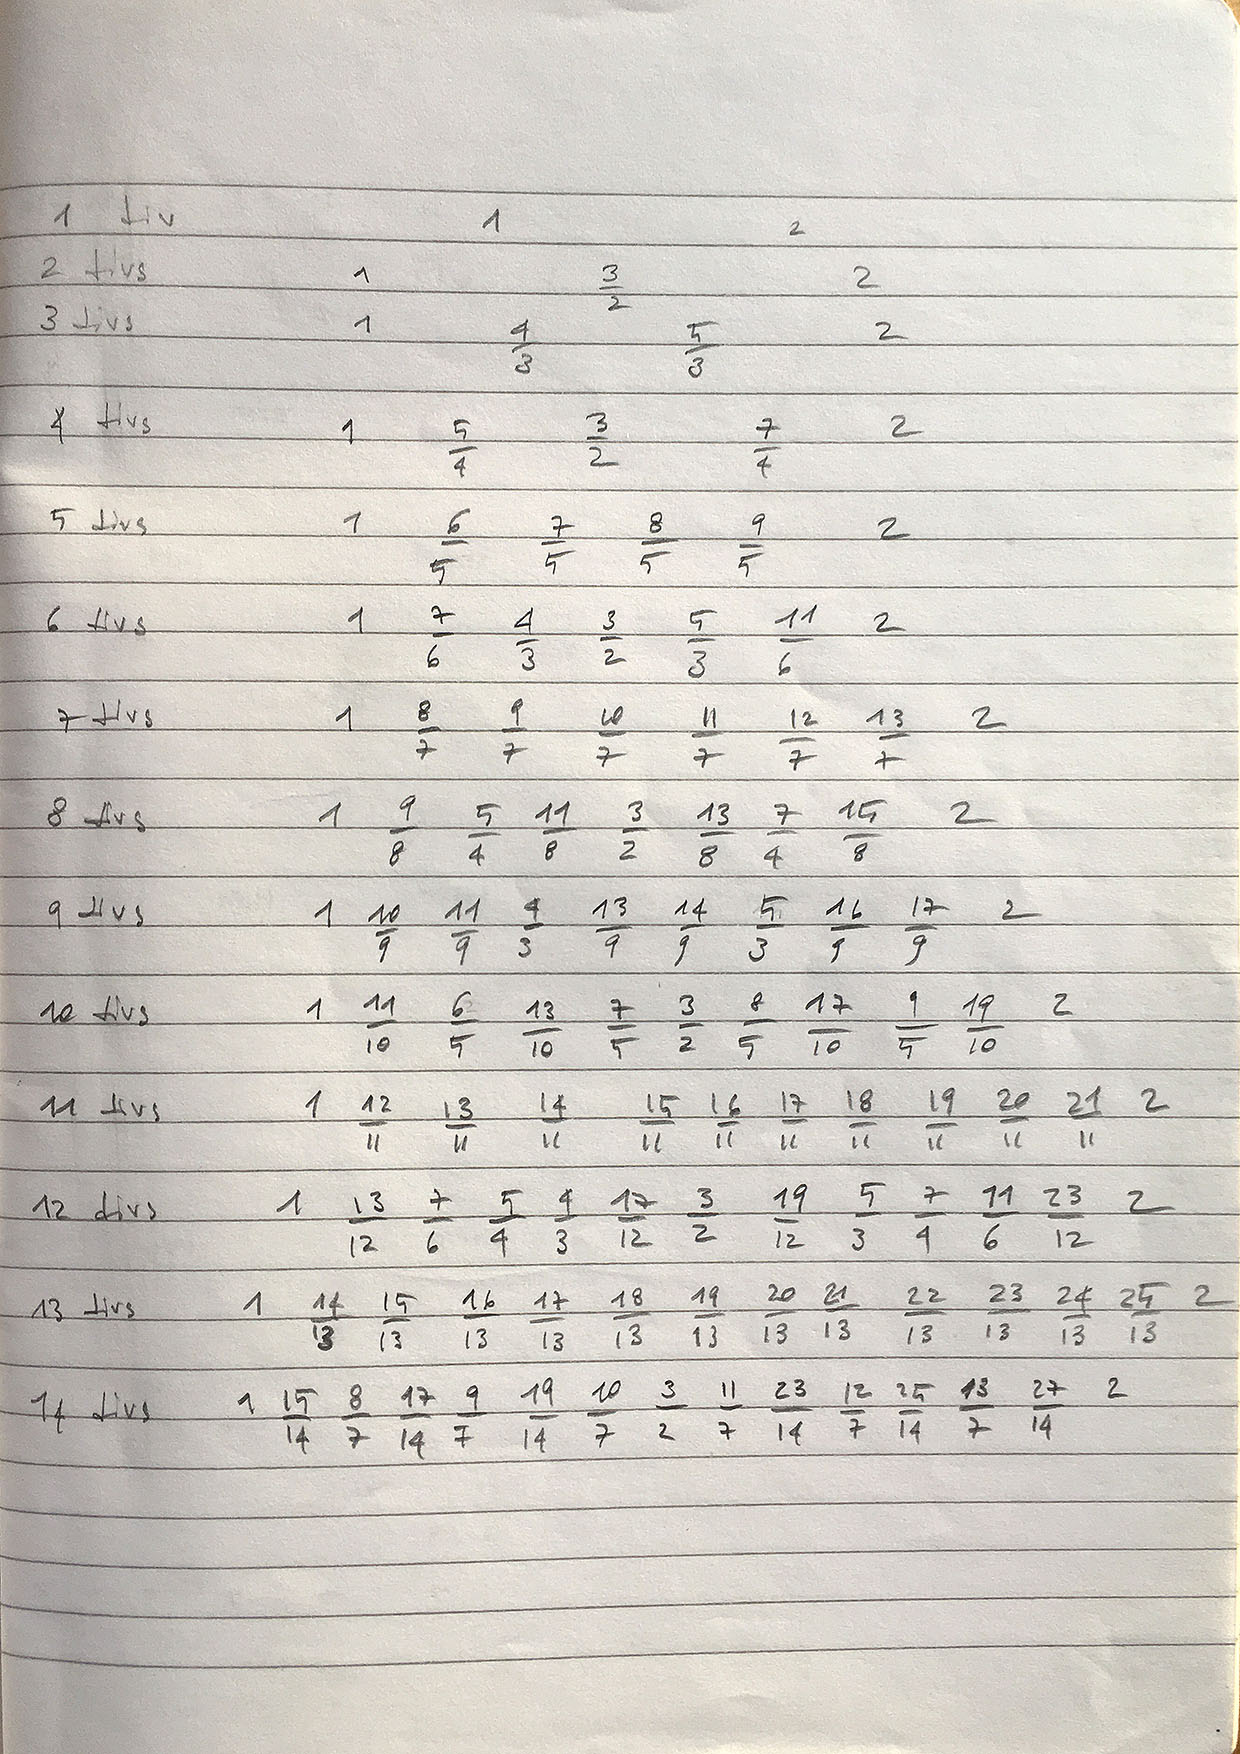 1 div 1 2
2 divs 1 3/2 2
3 divs 1 4/3 5/3 2
4 divs 1 5/4 3/2 7/4 2
5 divs 1 6/5 7/5 8/5 9/5 2
6 divs 1 7/6 4/3 3/2 5/3 11/6 2
7 divs 1 8/7 9/7 10/7 11/7 12/7 13/7 2
8 divs 1 9/8 5/4 11/8 3/2 13/8 7/4 15/8 2
9 divs 1 10/9 11/9 4/3 13/9 14/9 5/3 16/9 17/9 2
10 divs 1 11/10 6/5 13/10 7/5 3/2 8/5 17/10 9/5 19/10 2
11 divs 1 12/11 13/11 14/11 15/11 16/11 17/11 18/11 19/11 20/11 21/11 2
12 divs 1 13/12 7/6 5/4 4/3 17/12 3/2 19/12 5/3 7/4 11/6 23/12 2
13 divs 1 14/13 15/13 16/13 17/13 18/13 19/13 20/13 21/13 22/13 23/13 24/13 25/13 2
14 divs 1 15/14 8/7 17/14 9/7 19/14 10/7 3/2 11/7 23/14 12/7 25/14 13/7 27/14 2